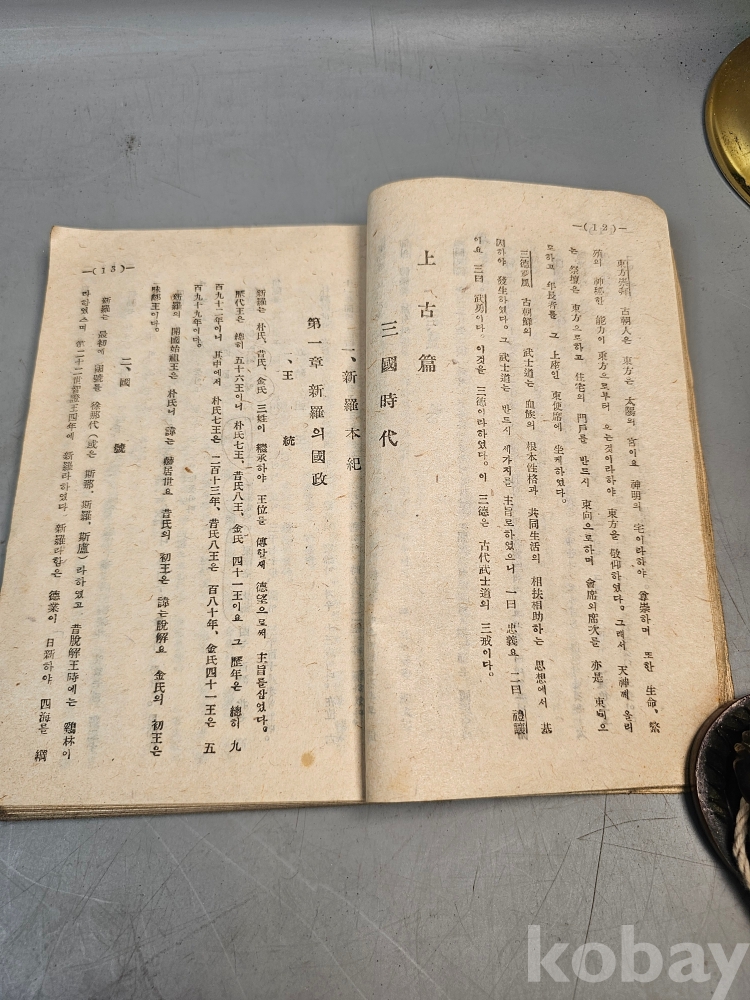 —(12)—
東方崇拜 古朝人은 東方은 太陽의 宮이요 神明의 宅이라하야 尊崇하며 또한 生命、繁
殖의 神秘한 能力이 東方으로부터 오는것이라하야 東方을 敬仰하였다。그래서 天神께 올리
는 祭壇은 東方으로하고 住宅의 門戶를 반드시 東向으로하며 會席의席次를 亦是 東쪽으
로하고 年長者를 그 上座인 東便席에 坐케하였다。
三德 古朝鮮의 武士道는 血族의 根本性格과 共同生活의 相扶相助하는 思想에서 基
因하야 發生하였다。그 武士道는 반드시 세가지를 主旨로하였으니 一曰 忠義요 二曰 禮讓
이요 三曰 武勇이다 이것을 三德이라하였다。이 三德은 古代武士道의 三戒이다。
上古篇
三國時代
一、新羅本紀
第一章 新羅의國政
一、王統
新羅는 朴氏、昔氏、金氏 三姓이 繼承하야 王位를 傳할새 德望으로써 主旨를삼었다。
歷代王은 總히 五十六王이니 朴氏七王、昔氏八王、金氏 四十一王이요 그 歷年은 總히 九
百九十二年이니 其中에서 朴氏七王은 二百十三年、昔氏八王은 百八十年、金氏四十一王은 五
百九十九年이다。
新羅의 開國始祖王은 朴氏니 諱는 赫居世요 昔氏의 初王은 諱는脫解요 金氏의 初王은
味鄒王이다。
二、國號
新羅는 最初에 國號를 徐那代(或은 斯那、斯羅、斯盧)라하였고 昔脫解王時에는 鷄林이
라하였스며 第二十二世智證王四年에 新羅라하였다 新羅라함은 德業이 日新하야 四海를 網
—(13)—
kobay